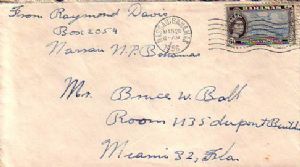 From Raymond Davis
Box 2054
Nassau N.P. Bahamas
NASSAU BAHAMAS
1956
BAHAMAS
Mr. Bruce W. Ball
Room 1135 dupont Build
Miami 32, Fla